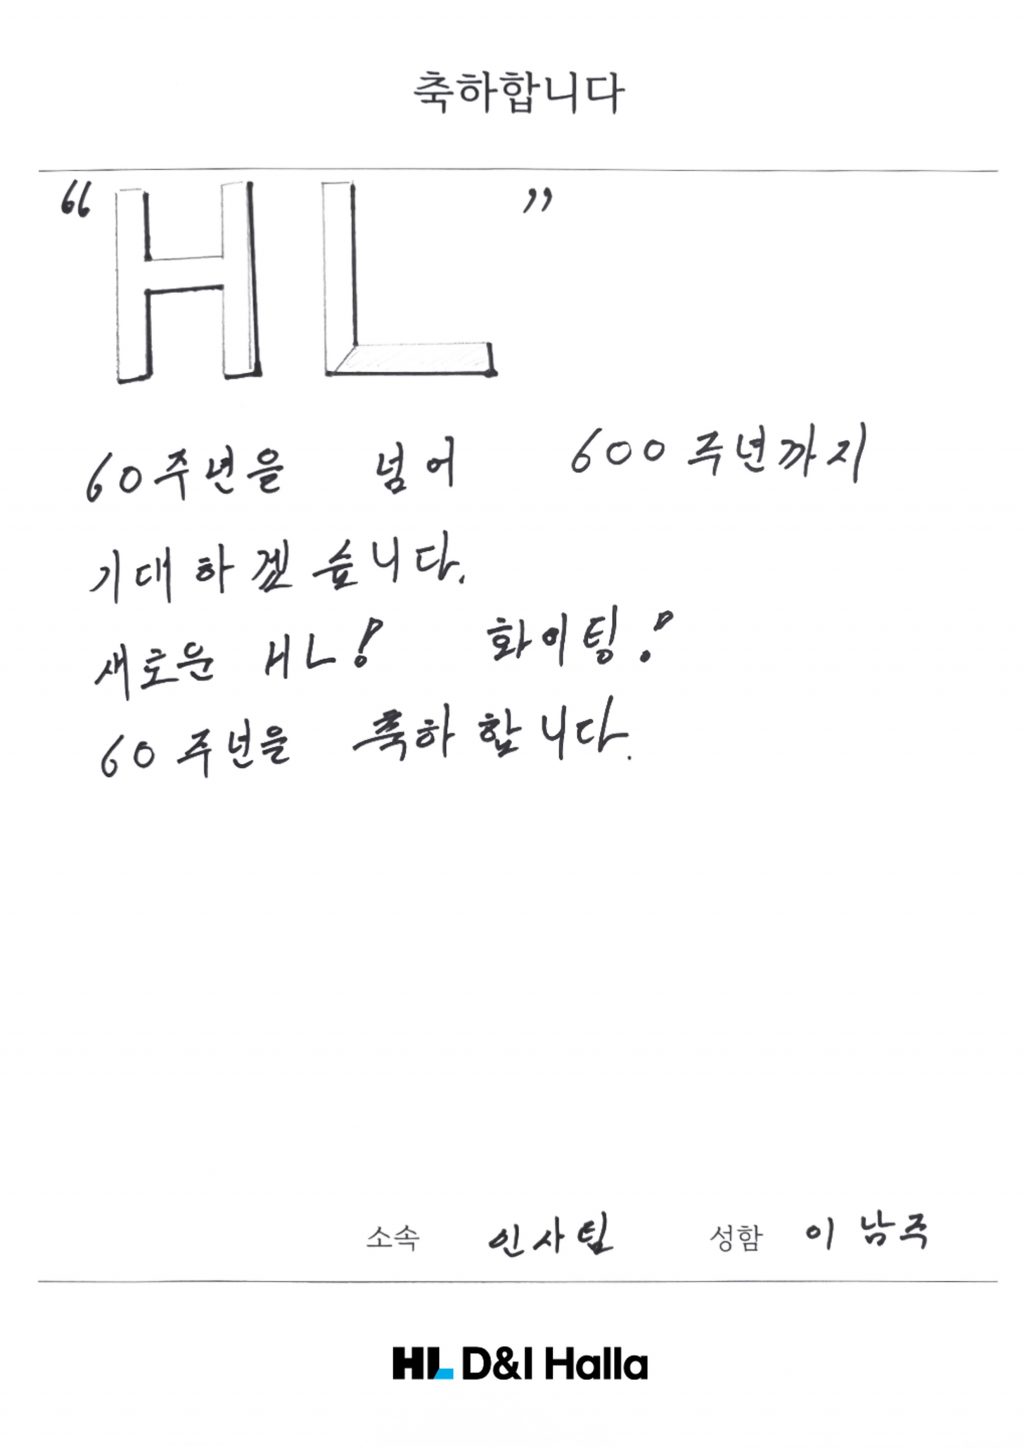 축하합니다
“HL”
60주년을 넘어 600주년까지
기대하겠습니다.
새로운 HL! 화이팅!
60주년을 축하합니다.
소속 인사팀 성함 이남주
HL D&I Halla